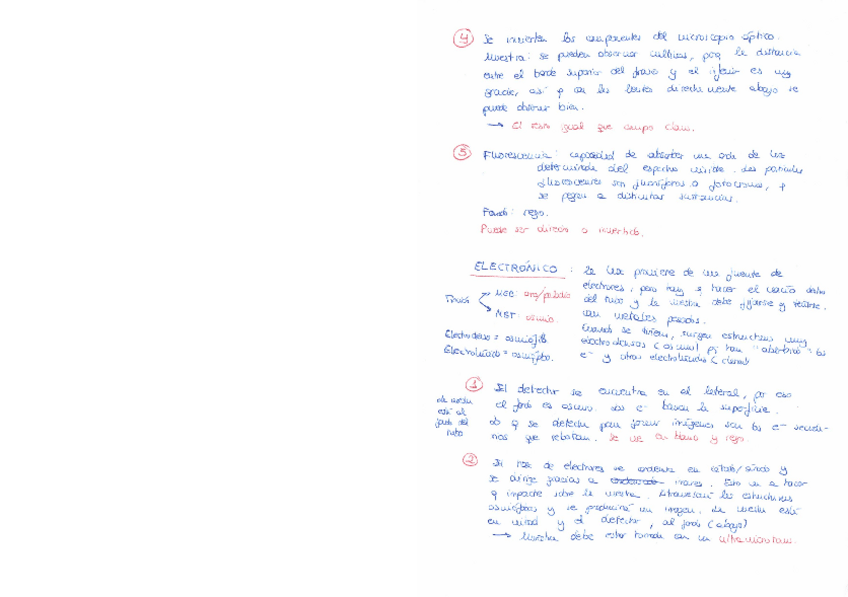 4 Se invierten los componentes del microscopio óptico.
Muestra: se pueden observar cultivos, porq la distancia
entre el borde superior del frasco y el objetivo es muy
grande, así q con las lentes directamente abajo se
puede observar bien.
→ El resto igual que campo claro.
5 Fluorescencia: capacidad de absorber una onda de luz
determinada del espectro visible. Las partículas
fluorescentes son fluoróforos o fotocromos, q
se pegan a distintas sustancias.
Fondo: negro.
Puede ser directo o invertido.
ELECTRÓNICO: la luz proviene de una fuente de
electrones, pero hay q hacer el vacío dentro
del tubo y la muestra debe fijarse y teñirse
con metales pesados.
Tinción
MEB: oro/paladio
MET: osmio.
Cuando se tiñen, surgen estructuras muy
electrodensas (osmio) pq han "absorbido" los
e⁻ y otras electrolúcidas (claras)
Electrodenso = osmiófilo.
Electrolúcido = osmiófobo.
1 El detector se encuentra en el lateral, por eso
el fondo es oscuro. Los e⁻ barren la superficie.
La muestra
está al
fondo del
tubo
Lo q se detecta para formar imágenes son los e⁻ secunda-
rios que rebotan. Se ve en blanco y negro.
2 El haz de electrones se
se dirige gracias a imanes. Esto va a hacer
q impacte sobre la muestra. Atravesará las estructuras
osmiófobas y se producirá una imagen. La muestra está
en mitad y el detector, al fondo (abajo)
→ Muestra debe estar cortada con un ultramicrotomo.